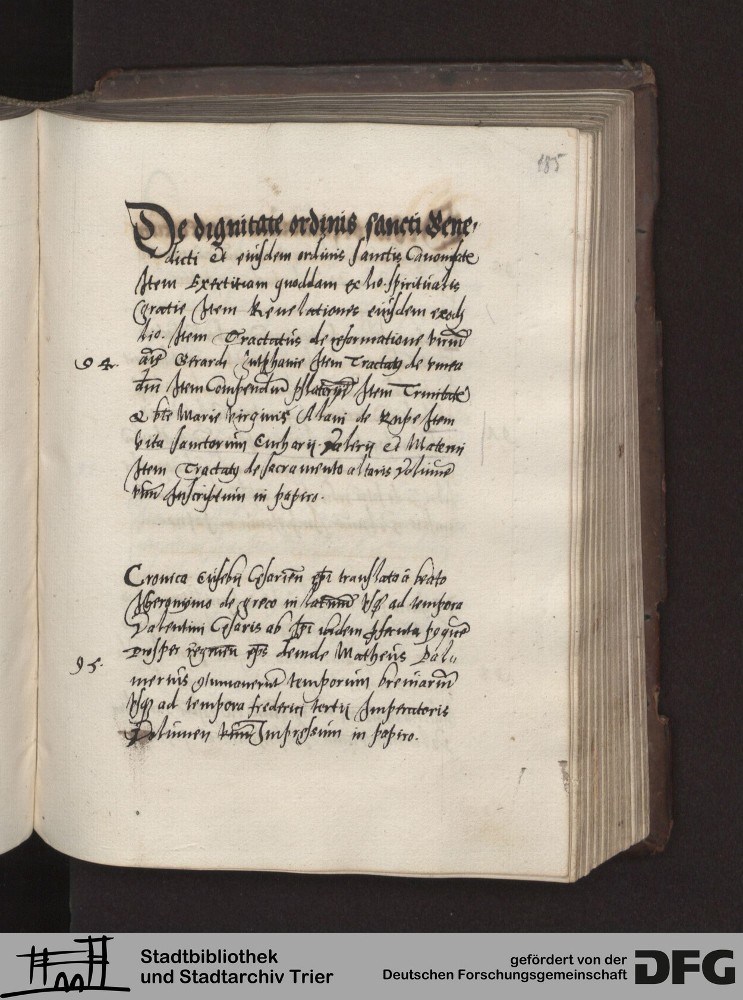 185
De dignitate ordinis sancti Bene,
dicti Et eiusdem ordinis sanctis Canonisate
Item Exercitiam quoddam ex lio. spiritualis
gratie Item Reuelationes eiusdem
lio. Item Tractatus de reformatione virium
94. aīe Gerardi Zutphanie Item Tractatus de vinea
dñi Item Compendium psalterij Item Trinitatis
& bte Marie virginis Alani de Rupe Item
vita sanctorum Eucharij Valerij Et Materni
Item Tractatus de sacramento altaris Volumē
vnū Inscriptum in papiro.
Cronica Eusebij Cesariēn epī translato a beato
Iheronymo de greco in latinum Vsq ad tempora
Valentini Cesaris ab ipī ibidem
95. Prosper deinde Matheus Pal-
merius temporum breuiariū
Vsq ad tempora frederici tertij Imperatoris
Volumen vnū Impressum in papiro.
Stadtbibliothek
und Stadtarchiv Trier
gefördert von der
Deutschen Forschungsgemeinschaft
DFG